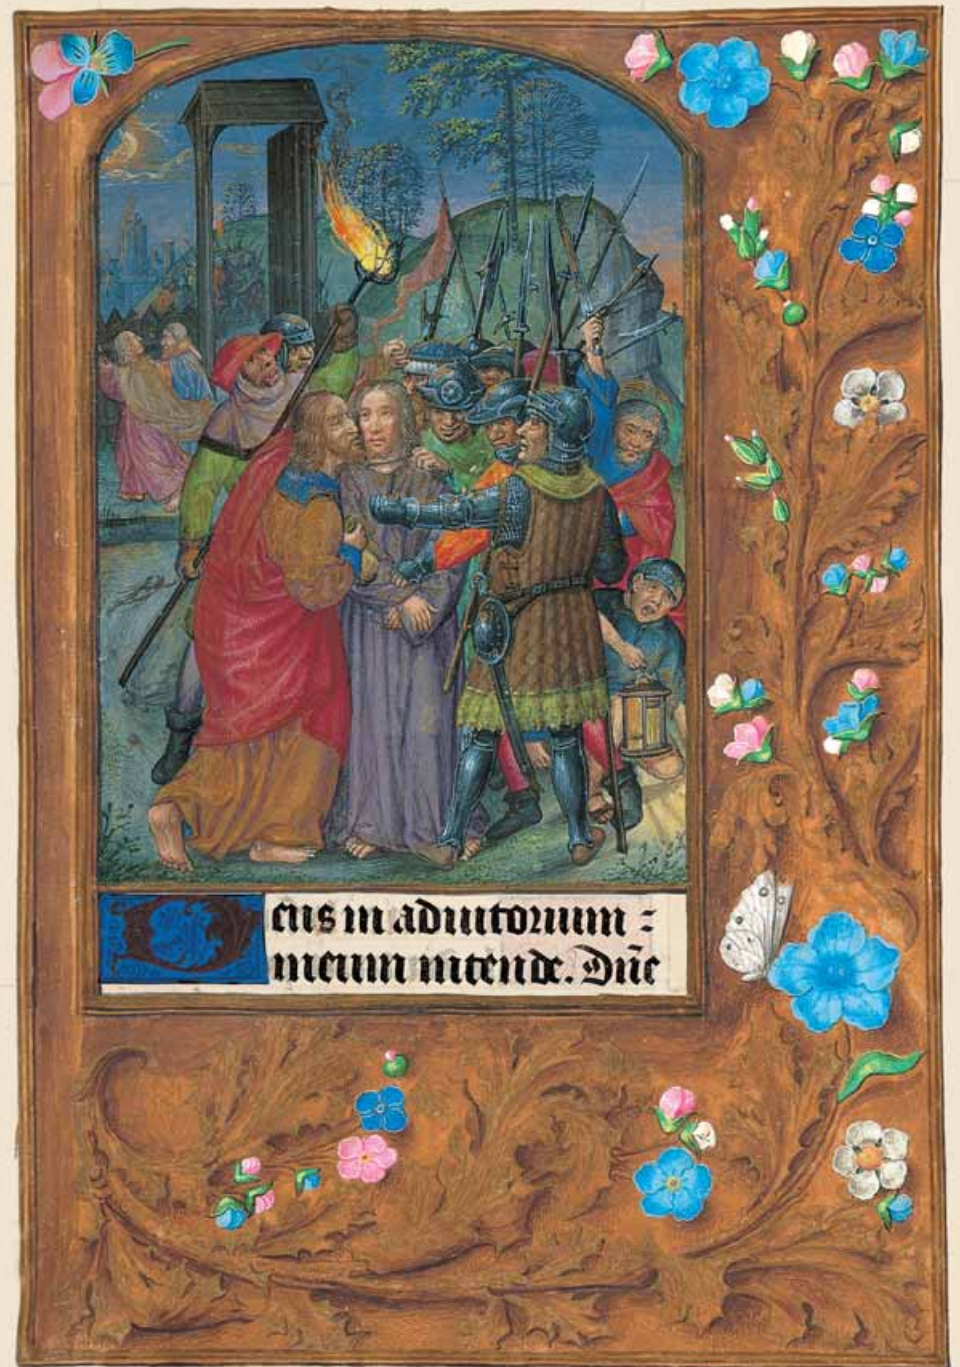 Deus in adiutorium
meum intende. Dn̄e